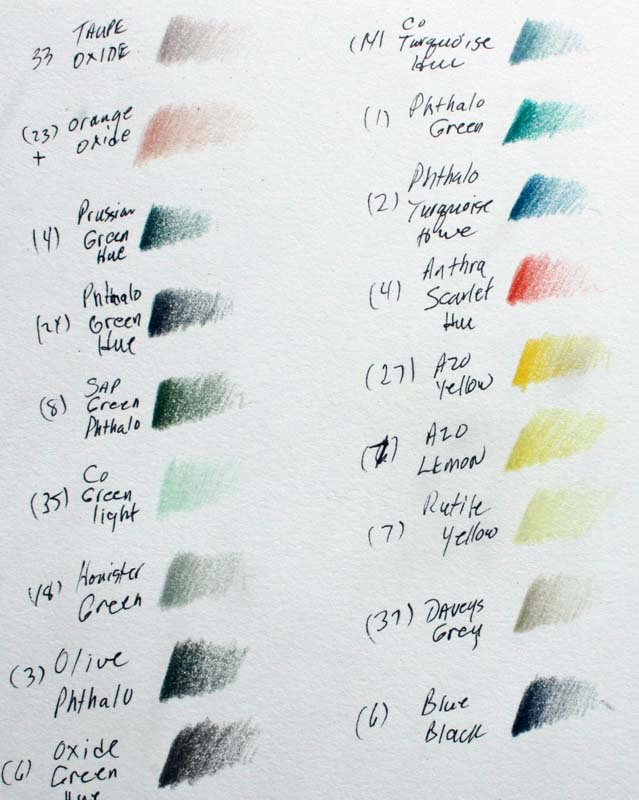 33 TAUPE
OXIDE
(23) Orange
+ Oxide
(4) Prussian
Green
Hue
(24) Phthalo
Green
Hue
(8) SAP
Green
Phthalo
(35) Co
Green
light
(18) Honister
Green
(3) Olive
Phthalo
(6) Oxide
Green
Hue
(14) Co
Turquoise
Hue
(1) Phthalo
Green
(2) Phthalo
Turquoise
Hue
(4) Anthra
Scarlet
Hue
(27) AZO
Yellow
AZO
LEMON
(7) Rutile
Yellow
(37) DAVEYS
Grey
(6) Blue
Black